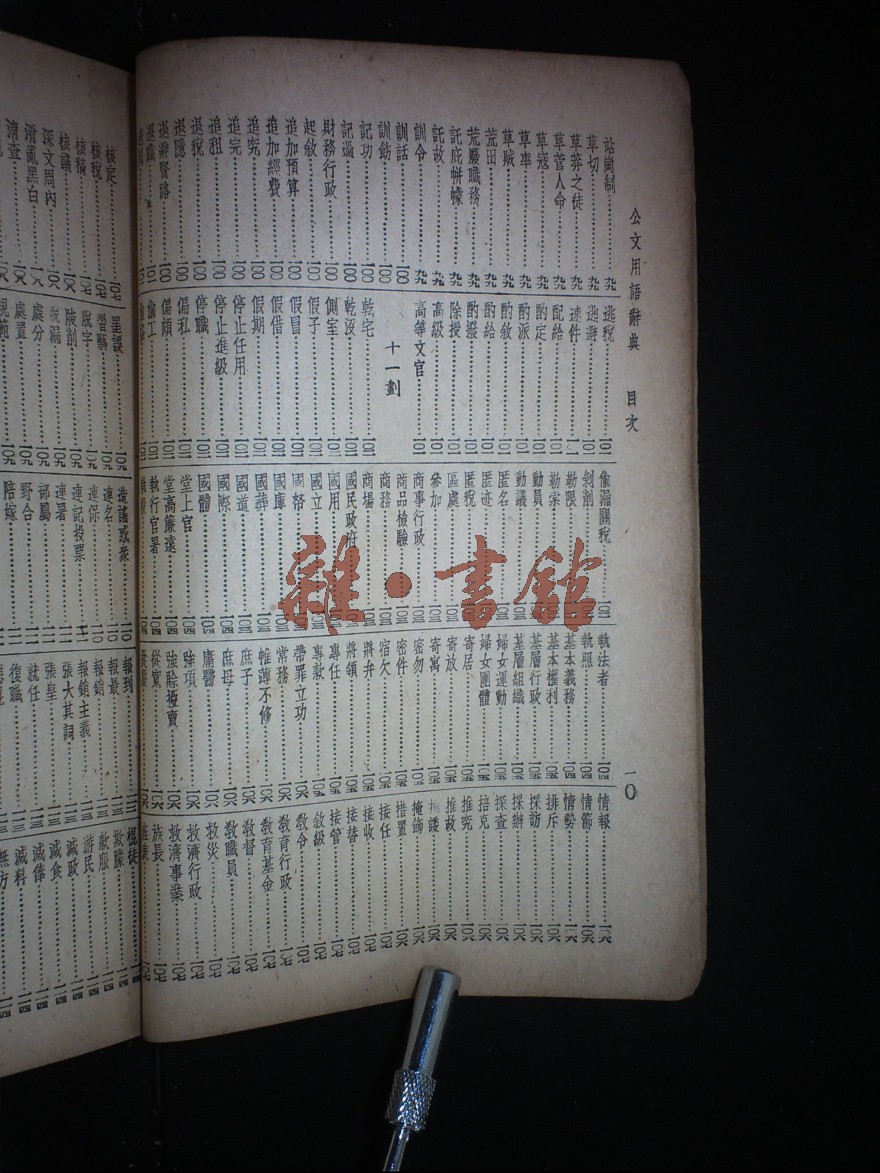 公文用語辭典　目次
一〇
站崗制……九九
草切……九九
草莽之徒……九九
草菅人命……九九
草寇……九九
草率……九九
草賊……九九
荒田……九九
荒廢職務……九九
託庇帡幪……九九
託故……九九
訓令……九九
訓話……一〇〇
訓飭……一〇〇
記功……一〇〇
記過……一〇〇
財務行政……一〇〇
起敘……一〇〇
追加預算……一〇〇
追加經費……一〇〇
追究……一〇〇
追完……一〇〇
追租……一〇〇
退稅……一〇〇
退隱……一〇〇
退避賢路……一〇一
退職……一〇一
逃稅……一〇一
逃避……一〇一
速件……一〇一
配給……一〇一
酌定……一〇一
酌派……一〇一
酌敘……一〇一
酌給……一〇一
酌撥……一〇一
除授……一〇一
高級……一〇一
高等文官……一〇一
十一劃
乾宅……一〇二
乾沒……一〇二
側室……一〇二
假子……一〇二
假冒……一〇二
假借……一〇二
假期……一〇二
停止任用……一〇二
停止進級……一〇二
停職……一〇二
偏私……一〇二
偏頗……一〇二
偷工……一〇二
偷漏關稅……一〇三
剝削……一〇三
勒限……一〇三
勒索……一〇三
動員……一〇三
動議……一〇三
匿名……一〇三
匿迹……一〇三
匿稅……一〇三
區處……一〇三
參加……一〇三
商事行政……一〇三
商品檢驗
商務
商埸
國民政府
國用
國立
國帑
國庫
國葬
國道……一〇四
國際……一〇四
國體……一〇四
堂上官……一〇四
堂高廉遠……一〇四
執行官署……一〇四
執法者……一〇四
執照……一〇四
基本義務……一〇四
基本權利……一〇四
基層行政……一〇五
基層組織……一〇五
婦女運動……一〇五
婦女團體……一〇五
寄居……一〇五
寄放……一〇五
寄寓……一〇五
密勿……一〇五
密件……一〇五
宿欠……一〇五
將弁……一〇五
將領……一〇五
專任……一〇五
專款……一〇五
帶罪立功……一〇六
常務……一〇六
帷薄不修……一〇六
庶子……一〇六
庶母……一〇六
庸醫……一〇六
強項……一〇六
強賒硬賣……一〇六
從寬……一〇六
情報……一〇六
情節……一〇六
情勢……一〇六
排斥……一〇六
探訪……一〇六
探辦……一〇六
探查……一〇六
掊克……一〇六
推究……一〇六
推故……一〇六
推諉……一〇六
掩飾……一〇六
措置……一〇六
接任……一〇七
接收……一〇七
接替……一〇七
接管……一〇七
敘級……一〇七
教令……一〇七
教育行政……一〇七
教育基金……一〇七
教督……一〇七
教職員……一〇七
救災……一〇七
救濟行政……一〇七
救濟事業……一〇七
族長……一〇七
核定……一〇七
核稅……一〇七
核稿……一〇七
核議……一〇八
深文周內……一〇八
淆亂黑白……一〇八
清查……一〇八
罣誤……一〇九
習藝……一〇九
脫字……一〇九
脧削……一〇九
脫漏……一〇九
處分……一〇九
處置……一〇九
規範……一〇九
造謠惑衆……一一〇
連名……一一〇
連保……一一〇
連記投票……一一一
連署……一一一
部屬……一一一
野合……一一一
陪嫁……一一一
報到……一一三
報最……一一三
報銷……一一三
報銷主義……一一三
張大其詞……一一三
張皇……一一三
就任……一一三
復職……一一三
欺朦
款服
游民……一一四
減政……一一四
減食……一一四
減俸……一一四
減料……一一四
無方……一一四
雜·書館